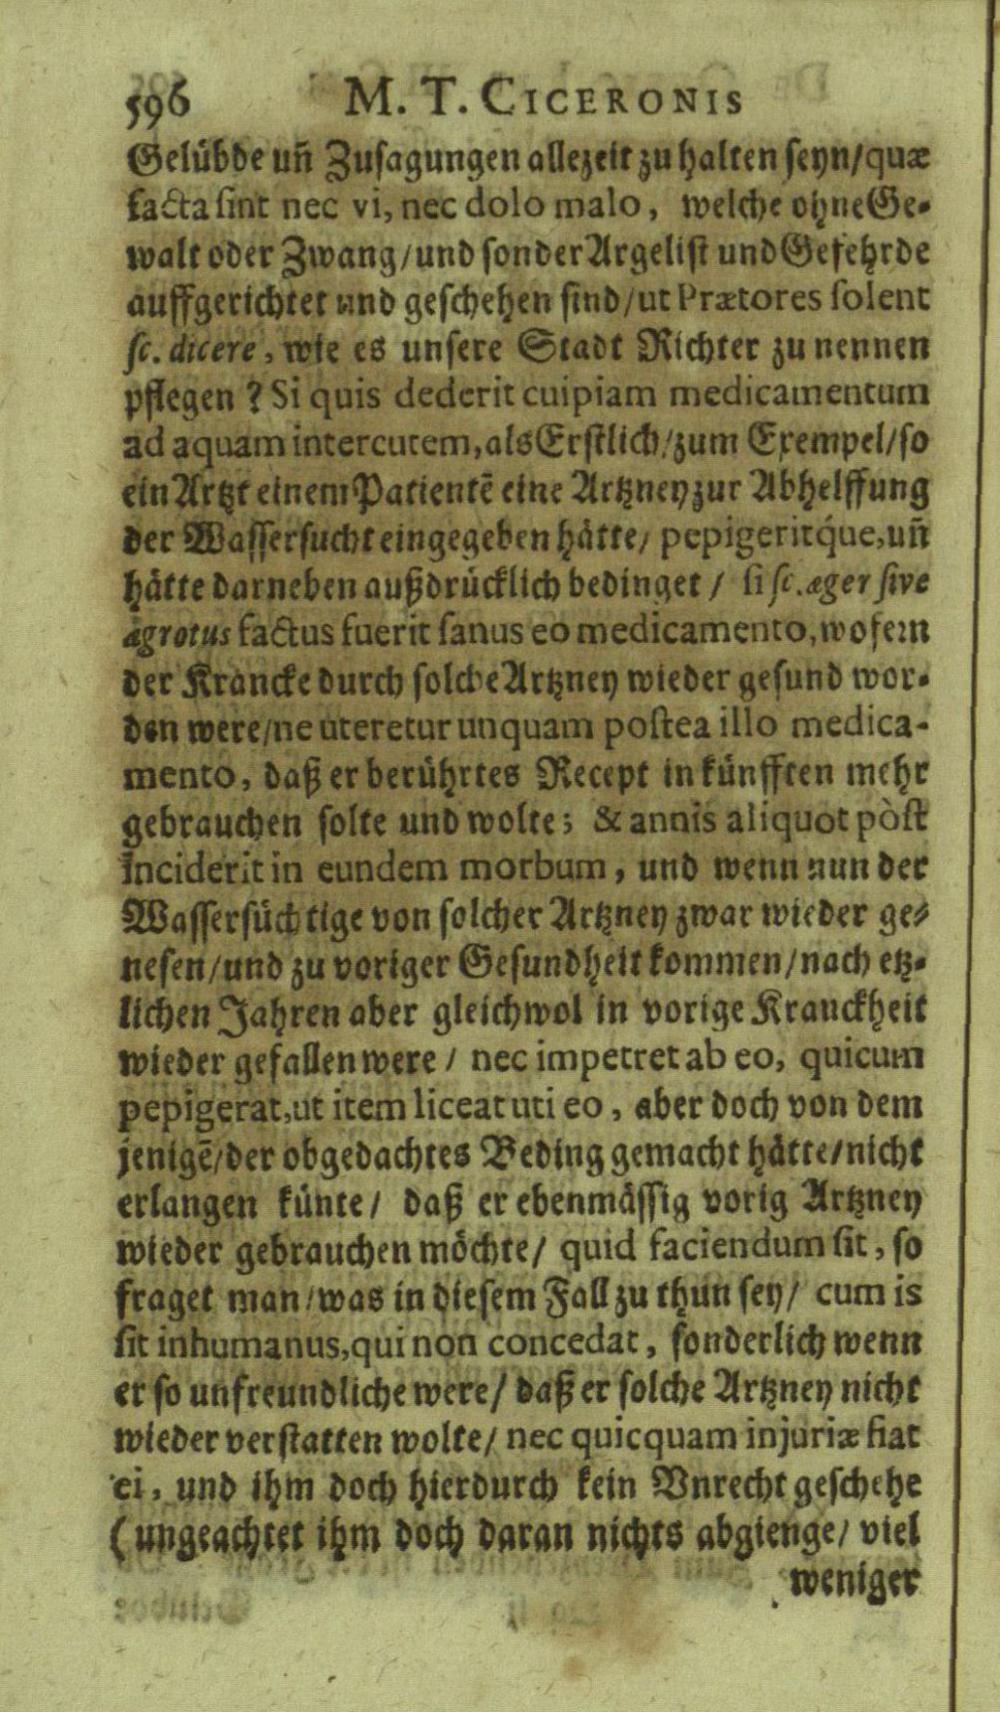 596 M. T. CICERONIS
Gelübde uñ Zusagungen allezeit zu halten seyn/quæ
facta sint nec vi, nec dolo malo, welche ohne Ge-
walt oder Zwang/und sonder Argelist und Gefehrde
auffgerichtet und geschehen sind/ut Prætores solent
sc. dicere, wie es unsere Stadt Richter zu nennen
pflegen? Si quis dederit cuipiam medicamentum
ad aquam intercutem, als Erstlich/zum Exempel/so
ein Artzt einem Patientẽ eine Artzney zur Abhelffung
der Wassersucht eingegeben hätte/ pepigeritq́ue, uñ
hätte darneben außdrücklich bedinget/ si sc. æger sive
ægrotus factus fuerit sanus eo medicamento, wofern
der Krancke durch solche Artzney wieder gesund wor-
den were/ne uteretur unquam postea illo medica-
mento, daß er berührtes Recept in künfften mehr
gebrauchen solte und wolte; & annis aliquot pòst
inciderit in eundem morbum, und wenn nun der
Wassersüchtige von solcher Artzney zwar wieder ge-
nesen/und zu voriger Gesundheit kommen/nach etz-
lichen Jahren aber gleichwol in vorige Kranckheit
wieder gefallen were/ nec impetret ab eo, quicum
pepigerat, ut item liceat uti eo, aber doch von dem
jenigẽ/der obgedachtes Beding gemacht hätte/nicht
erlangen künte/ daß er ebenmässig vorig Artzney
wieder gebrauchen möchte/ quid faciendum sit, so
fraget man/was in diesem Fall zu thun sey/ cum is
sit inhumanus, qui non concedat, sonderlich wenn
er so unfreundliche were/ daß er solche Artzney nicht
wieder verstatten wolte/ nec quicquam injuriæ fiat
ei, und ihm doch hierdurch kein Vnrecht geschehe
(ungeachtet ihm doch daran nichts abgienge/ viel
weniger